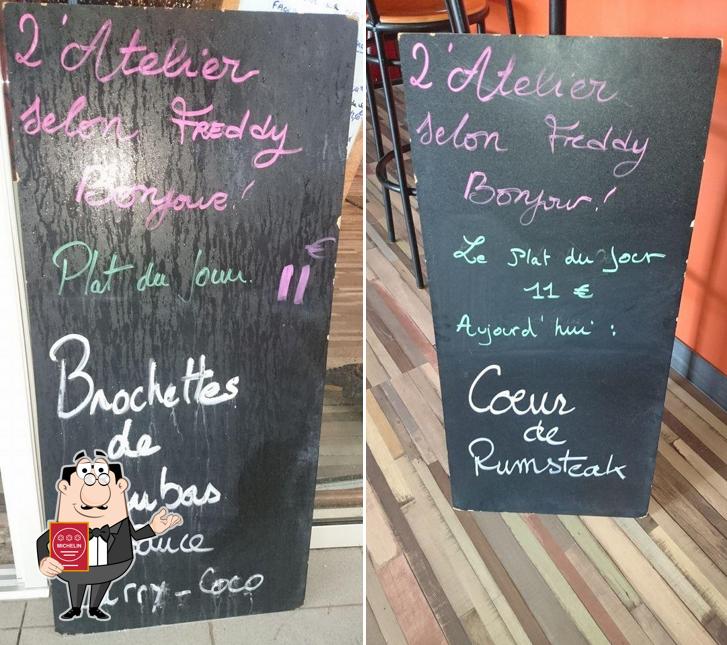 L'Atelier
selon FREDDY
Bonjour !
Plat du Jour. 11 €
Brochettes
de
MICHELIN
- Coco
L'Atelier
selon Freddy
Bonjour !
Le Plat du Jour
11 €
Aujourd'hui :
Cœur
de
Rumsteak